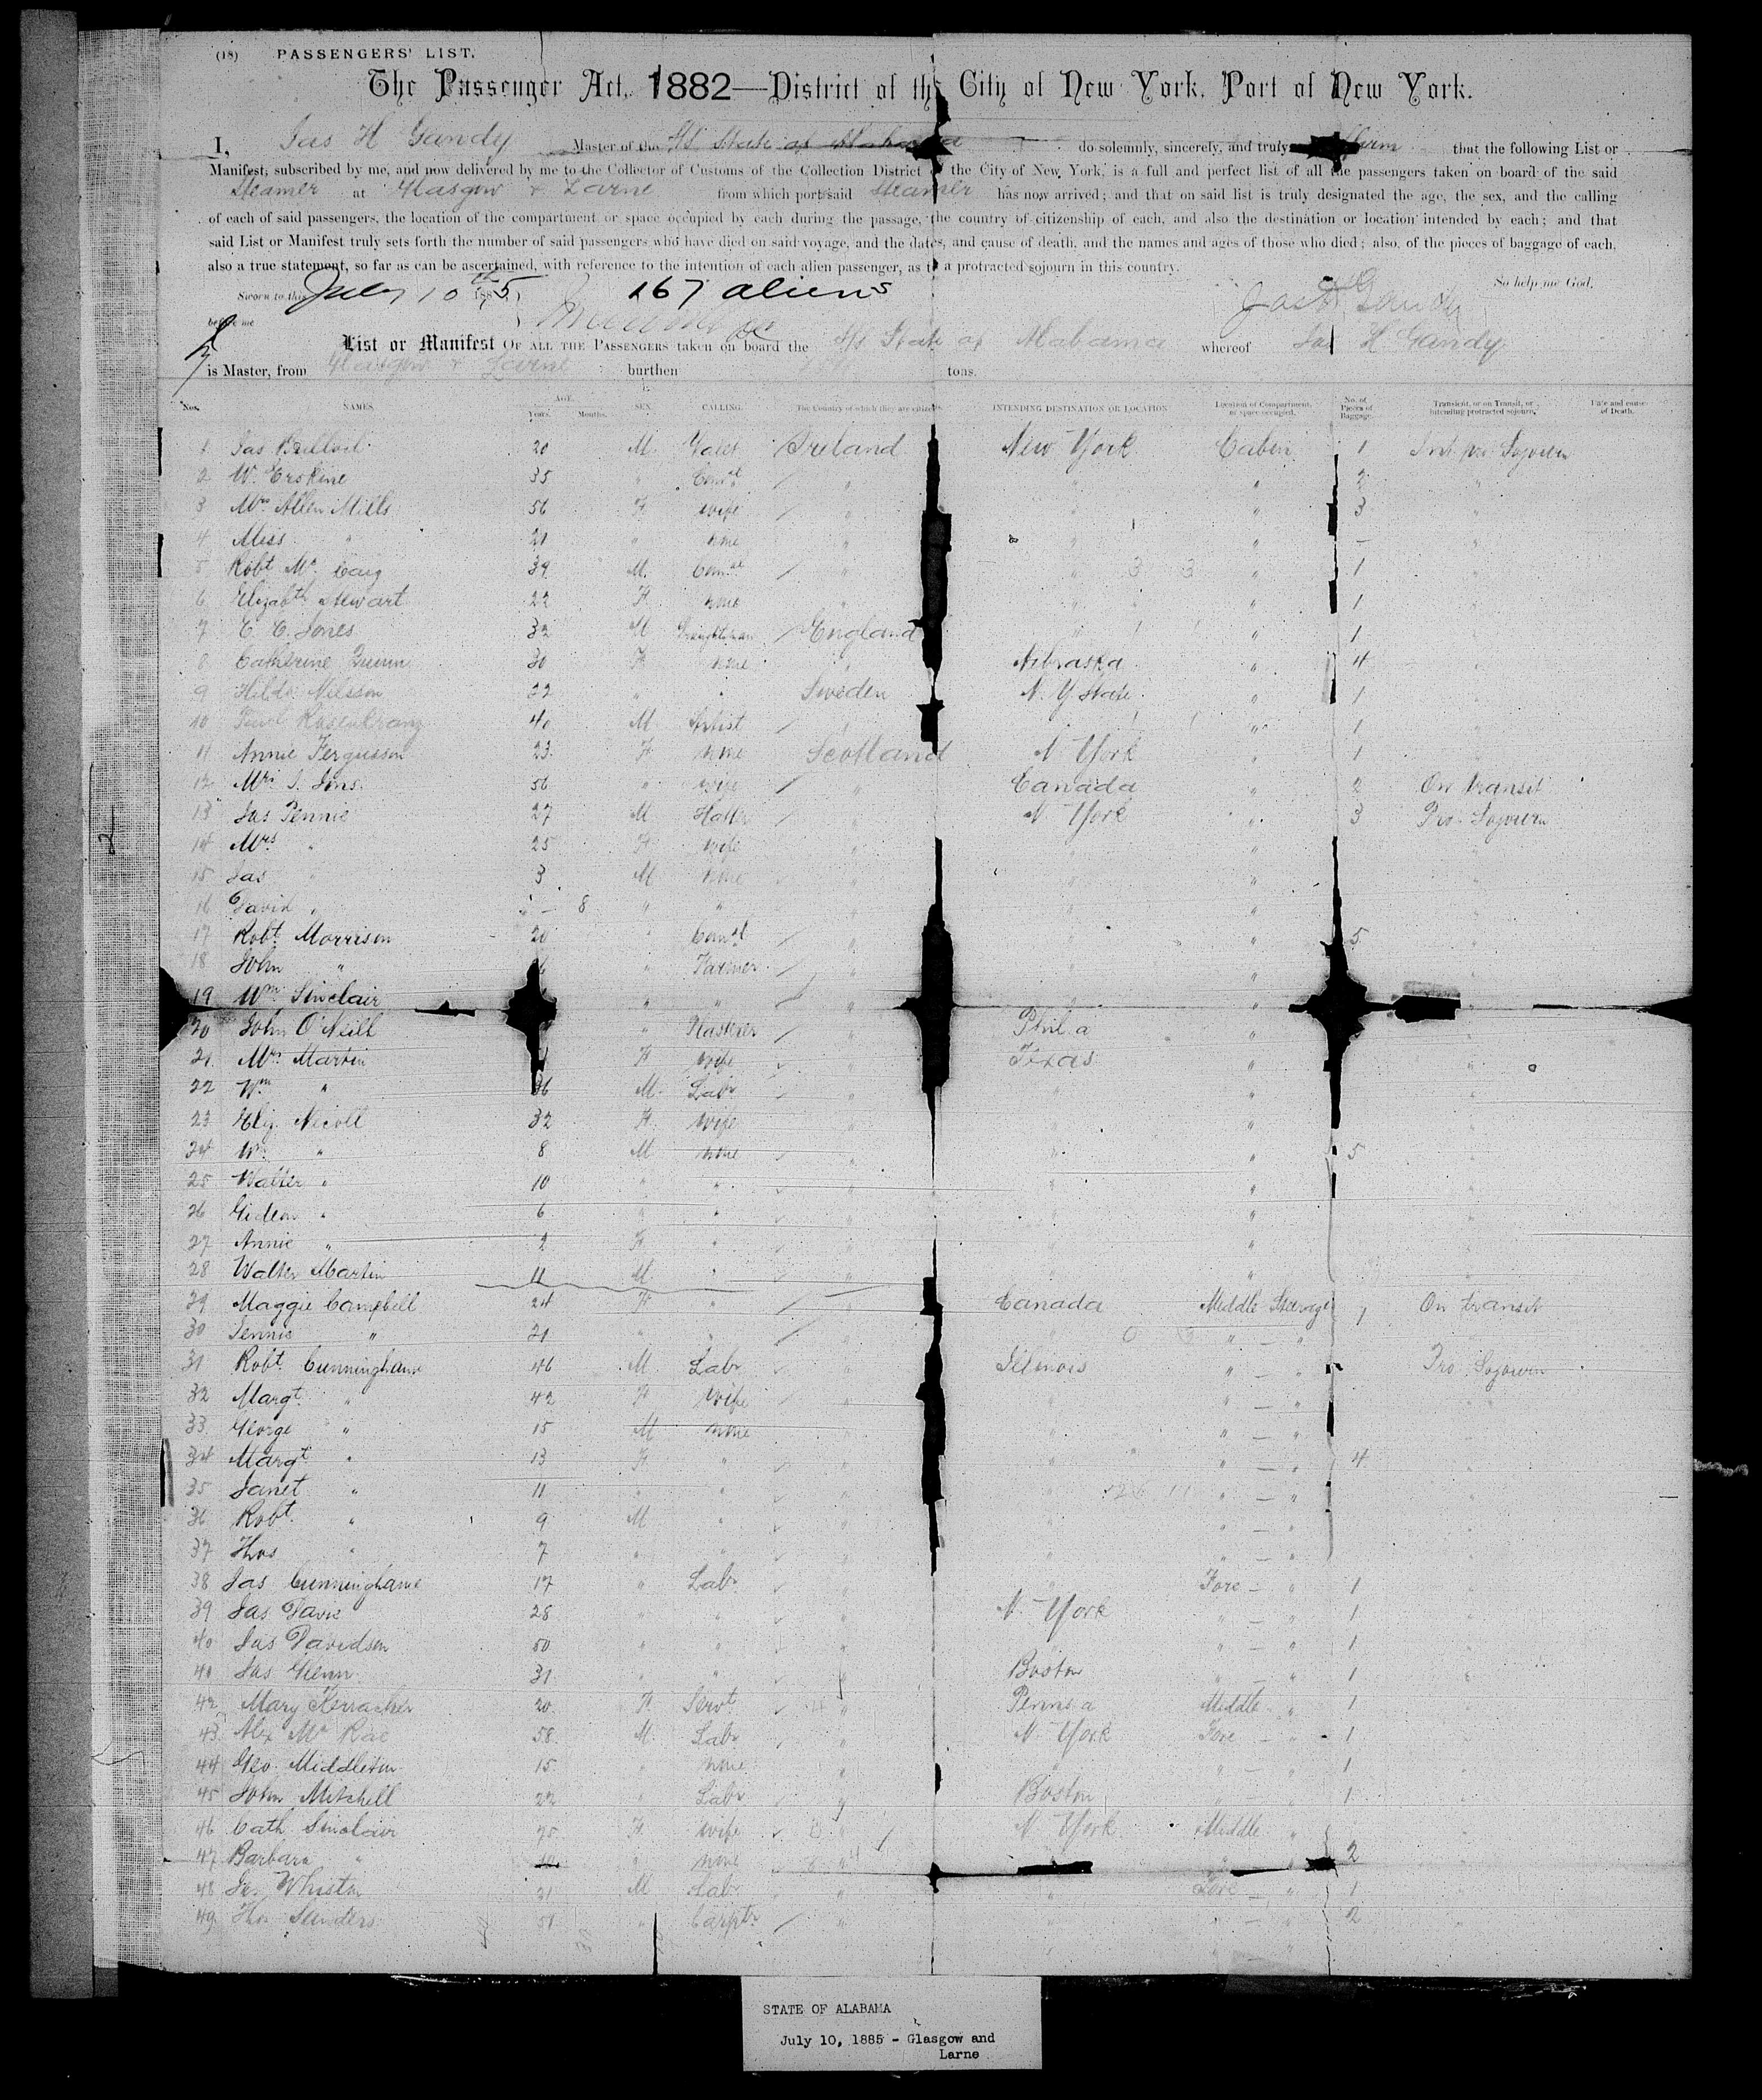 (18) PASSENGERS' LIST.
The Passenger Act, 1882—District of the City of New York, Port of New York.
I, Jas H Gandy Master of the SS State of Alabama do solemnly, sincerely, and truly that the following List or
Manifest, subscribed by me, and now delivered by me to the Collector of Customs of the Collection District of the City of New York, is a full and perfect list of all the passengers taken on board of the said
Steamer at Glasgow & Larne from which port said Steamer has now arrived; and that on said list is truly designated the age, the sex, and the calling
of each of said passengers, the location of the compartment or space occupied by each during the passage, the country of citizenship of each, and also the destination or location intended by each; and that
said List or Manifest truly sets forth the number of said passengers who have died on said voyage, and the dates, and cause of death, and the names and ages of those who died; also, of the pieces of baggage of each,
also a true statement, so far as can be ascertained, with reference to the intention of each alien passenger, as to a protracted sojourn in this country. So help me God.
Sworn to this July 10th 1885 167 aliens Jas H Gandy
before me
List or Manifest OF ALL THE PASSENGERS taken on board the S/s State of Alabama whereof Jas H Gandy
is Master, from Glasgow & Larne burthen tons.
Nos. NAMES. AGE. Years. Months. SEX. CALLING. The Country of which they are citizens. INTENDING DESTINATION OR LOCATION. Location of Compartment, or space occupied. No. of Pieces of Baggage. Transient, or on Transit, or intending protracted sojourn. Date and cause of Death.
1 Jas 20 M. Ireland New York Cabin 1 Sojourn
2 W. Erskine 35 " Com'l " " " 2 "
3 Mrs Allen Mills 56 F wife " " " 3 "
4 Miss " 21 " none " " " – "
5 Robt Mc Caig 39 M. Com'l " " " 1 "
6 Elizabth Stewart 22 F none " " " 1 "
7 C. C. Jones 32 M Draughtsman England " " 1
8 Catherine Quinn 30 F none " Nebraska " 4
9 Hilda Nilsson 22 " " Sweden N. Y State " 1
10 Rosenkranz 40 M Artist " " " 1
11 Annie Fergusson 23 F none Scotland N York " 1
12 Mrs J. 56 " wife " Canada " 2 On transit
13 Jas Pennie 27 M Hatter " N. York " 3 Pro. Sojourn
14 Mrs " 25 F wife " " "
15 Jas " 3 M none " " "
16 David " – 8 " " " " "
17 Robt Morrison 20 " Com'l " " " 5
18 John " " Farmer " " "
19 Wm Sinclair " " " " "
20 John O'Neill " Plasterer " Phil.a "
21 Mrs Martin F wife " Texas "
22 Wm " 36 M. Labr " " "
23 Eliz. Nicoll 32 F. wife " " "
24 Wm " 8 M none " " " 5
25 Walter " 10 " " " " "
26 Gideon " 6 " " " " "
27 Annie " F " " " "
28 Walter Martin 11 M " " " "
29 Maggie Campbell 24 F " " Canada Middle Steerage 1 On transit
30 Jennie " 21 " " " " " – "
31 Robt. Cunninghame 46 M Labr " Illinois " – " Pro. Sojourn
32 Margt " 42 F wife " " " – "
33 George " 15 M none " " " – "
34 Margt " 13 F " " " " – " 4
35 Janet " 11 " " " " " – "
36 Robt. " 9 M " " " " – "
37 Thos " 7 " " " " " – "
38 Jas Cunninghame 17 " Labr " " Fore – " 1
39 Jas Davie 28 " " " N. York " – " 1
40 Jas Davidson 50 " " " " " – " 1
41 Jas Glenn 31 " " " Boston " – " 1
42 Mary Kerracher 20 F. Servt " Penns.a Middle " 1
43 Alex Mc Rae 58 M. Labr " N. York Fore – " 1
44 Geo. Middleton 15 " none " " " – " 1
45 John Mitchell 22 " Labr " Boston " " 1
46 Cath Sinclair F. wife " N York Middle "
47 Barbara " " none " " " 2
48 Whiston 21 M Labr " " Fore – " 1
49 Thos Sanders 51 " Carptr " " " – " 2
STATE OF ALABAMA
July 10, 1885 - Glasgow and
Larne